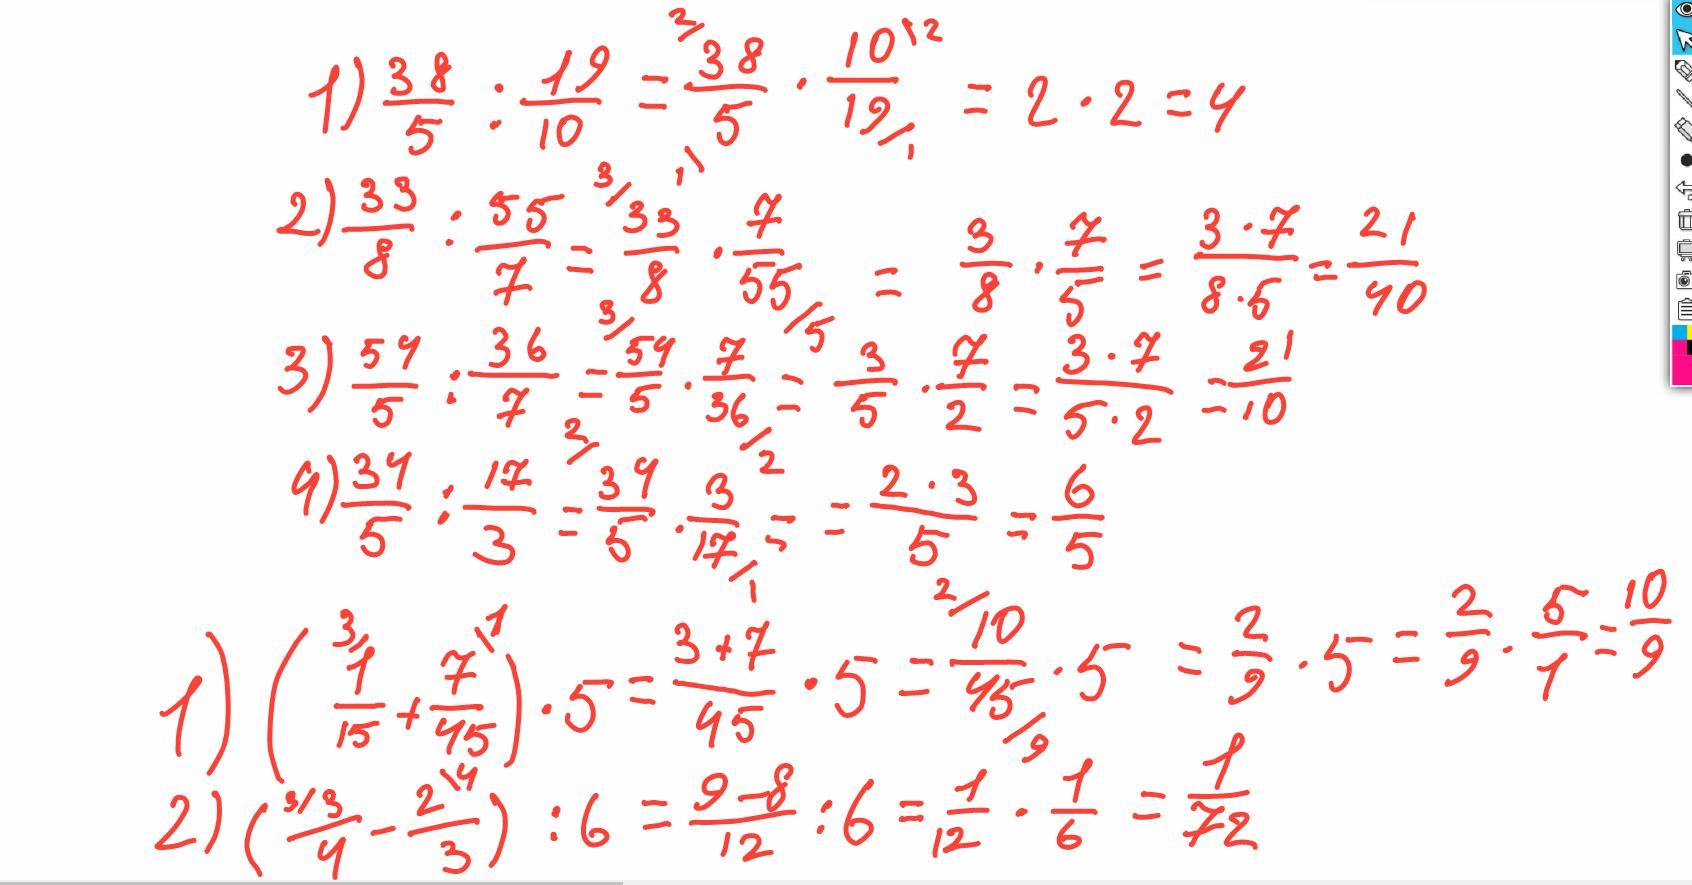 1) 38/5 : 19/10 = 2/ 38/5 · 10/19 \2 /1 = 2 · 2 = 4
2) 33/8 : 55/7 = 3/ 33/8 · 7/55 1\ /5 = 3/8 · 7/5 = 3·7/8·5 = 21/40
3) 54/5 : 36/7 = 3/ 54/5 · 7/36 /2 = 3/5 · 7/2 = 3·7/5·2 = 21/10
4) 34/5 : 17/3 = 2/ 34/5 · 3/17 /1 = = 2·3/5 = 6/5
1) ( 3\ 1/15 + 7/45 \1 ) · 5 = 3+7/45 · 5 = 2/ 10/45 /9 · 5 = 2/9 · 5 = 2/9 · 5/1 = 10/9
2) ( 3/ 3/4 - 2/3 \4 ) : 6 = 9-8/12 : 6 = 1/12 · 1/6 = 1/72